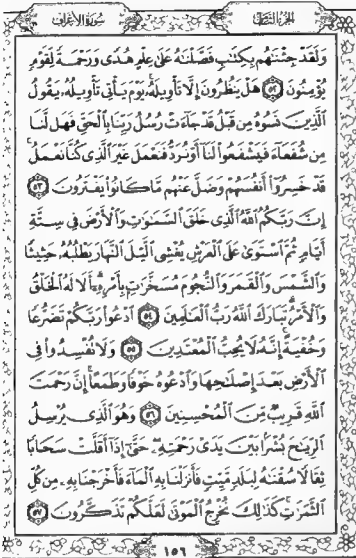 الجزء الثامن
سورة الأعراف
وَلَقَدْ جِئْنَٰهُم بِكِتَٰبٍ فَصَّلْنَٰهُ عَلَىٰ عِلْمٍ هُدًى وَرَحْمَةً لِّقَوْمٍ
يُؤْمِنُونَ ۝٥٢ هَلْ يَنظُرُونَ إِلَّا تَأْوِيلَهُۥ يَوْمَ يَأْتِى تَأْوِيلُهُۥ يَقُولُ
ٱلَّذِينَ نَسُوهُ مِن قَبْلُ قَدْ جَآءَتْ رُسُلُ رَبِّنَا بِٱلْحَقِّ فَهَل لَّنَا
مِن شُفَعَآءَ فَيَشْفَعُوا۟ لَنَآ أَوْ نُرَدُّ فَنَعْمَلَ غَيْرَ ٱلَّذِى كُنَّا نَعْمَلُ
قَدْ خَسِرُوٓا۟ أَنفُسَهُمْ وَضَلَّ عَنْهُم مَّا كَانُوا۟ يَفْتَرُونَ ۝٥٣
إِنَّ رَبَّكُمُ ٱللَّهُ ٱلَّذِى خَلَقَ ٱلسَّمَٰوَٰتِ وَٱلْأَرْضَ فِى سِتَّةِ
أَيَّامٍ ثُمَّ ٱسْتَوَىٰ عَلَى ٱلْعَرْشِ يُغْشِى ٱلَّيْلَ ٱلنَّهَارَ يَطْلُبُهُۥ حَثِيثًا
وَٱلشَّمْسَ وَٱلْقَمَرَ وَٱلنُّجُومَ مُسَخَّرَٰتٍۭ بِأَمْرِهِۦٓ أَلَا لَهُ ٱلْخَلْقُ
وَٱلْأَمْرُ تَبَارَكَ ٱللَّهُ رَبُّ ٱلْعَٰلَمِينَ ۝٥٤ ٱدْعُوا۟ رَبَّكُمْ تَضَرُّعًا
وَخُفْيَةً إِنَّهُۥ لَا يُحِبُّ ٱلْمُعْتَدِينَ ۝٥٥ وَلَا تُفْسِدُوا۟ فِى
ٱلْأَرْضِ بَعْدَ إِصْلَٰحِهَا وَٱدْعُوهُ خَوْفًا وَطَمَعًا إِنَّ رَحْمَتَ
ٱللَّهِ قَرِيبٌ مِّنَ ٱلْمُحْسِنِينَ ۝٥٦ وَهُوَ ٱلَّذِى يُرْسِلُ
ٱلرِّيَٰحَ بُشْرًۢا بَيْنَ يَدَىْ رَحْمَتِهِۦ حَتَّىٰٓ إِذَآ أَقَلَّتْ سَحَابًا
ثِقَالًا سُقْنَٰهُ لِبَلَدٍ مَّيِّتٍ فَأَنزَلْنَا بِهِ ٱلْمَآءَ فَأَخْرَجْنَا بِهِۦ مِن كُلِّ
ٱلثَّمَرَٰتِ كَذَٰلِكَ نُخْرِجُ ٱلْمَوْتَىٰ لَعَلَّكُمْ تَذَكَّرُونَ ۝٥٧
١٥٦